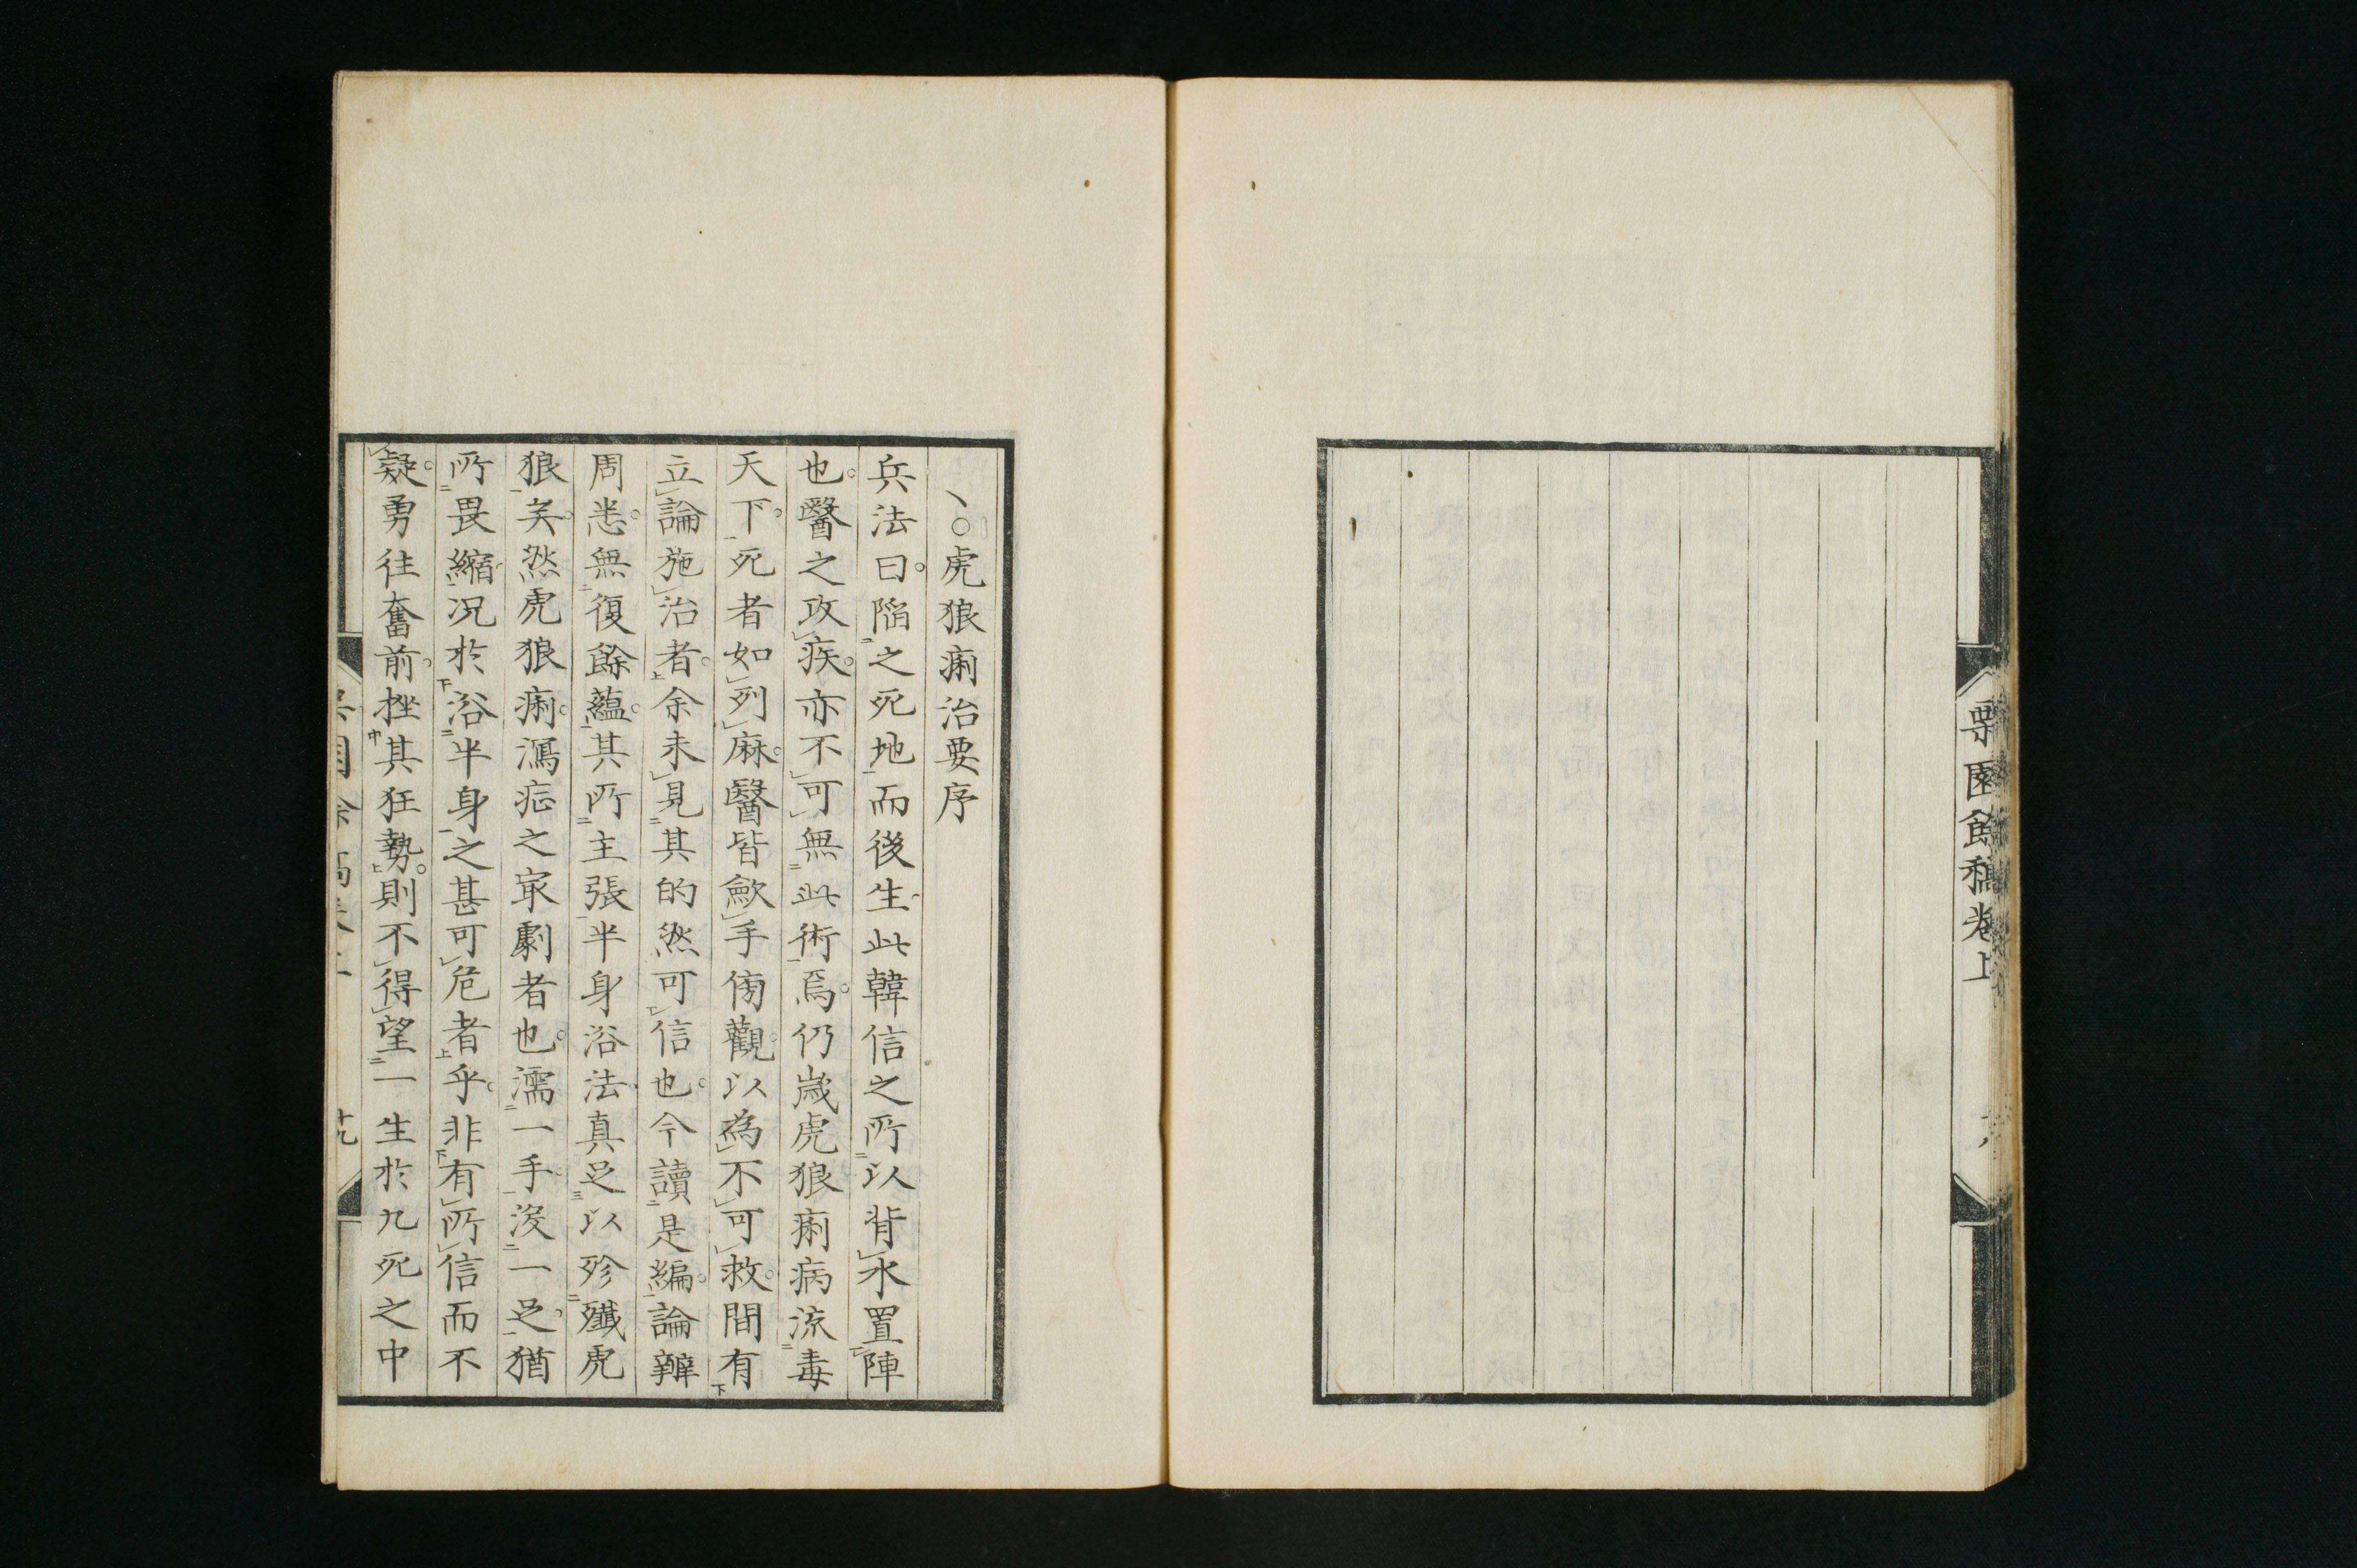 栗園餘稿卷上
虎狼痢治要序
兵法曰陷之死地而後生此韓信之所以背水置陣
也醫之攻疾亦不可無此術焉仍歳虎狼痢病流毒
天下死者如列麻醫皆斂手傍觀以為不可救間有
立論施治者余未見其的然可信也今讀是編論辨
周悉無復餘蘊其所主張半身浴法真足以殄殲虎
狼矣然虎狼痢瀉症之冣劇者也濡一手沒一足猶
所畏縮況於浴半身之甚可危者乎非有所信而不
疑勇往奮前挫其狂勢則不得望一生於九死之中